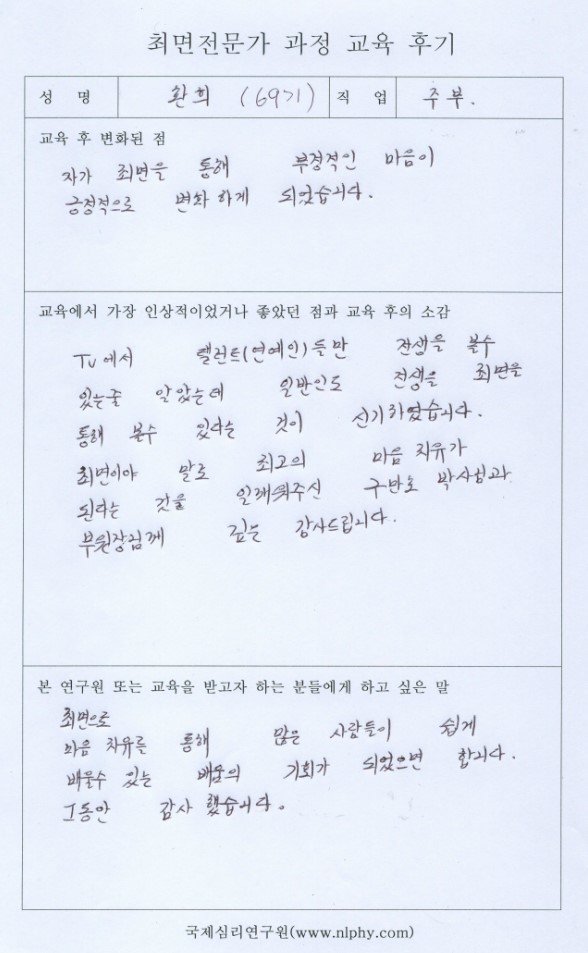 최면전문가 과정 교육 후기
성 명 환희 (69기) 직 업 주부.
교육 후 변화된 점
자가 최면을 통해 부정적인 마음이
긍정적으로 변화 하게 되었습니다.
교육에서 가장 인상적이었거나 좋았던 점과 교육 후의 소감
TV에서 탤런트(연예인)들만 전생을 볼수
있는줄 알았는데 일반인도 전생을 최면을
통해 볼수 있다는 것이 신기하였습니다.
최면이야 말로 최고의 마음 치유가
된다는 것을 일깨워주신 구만호 박사님과
부원장님께 깊은 감사드립니다.
본 연구원 또는 교육을 받고자 하는 분들에게 하고 싶은 말
최면으로
마음 치유를 통해 많은 사람들이 쉽게
배울수 있는 배움의 기회가 되었으면 합니다.
그동안 감사 했습니다.
국제심리연구원(www.nlphy.com)